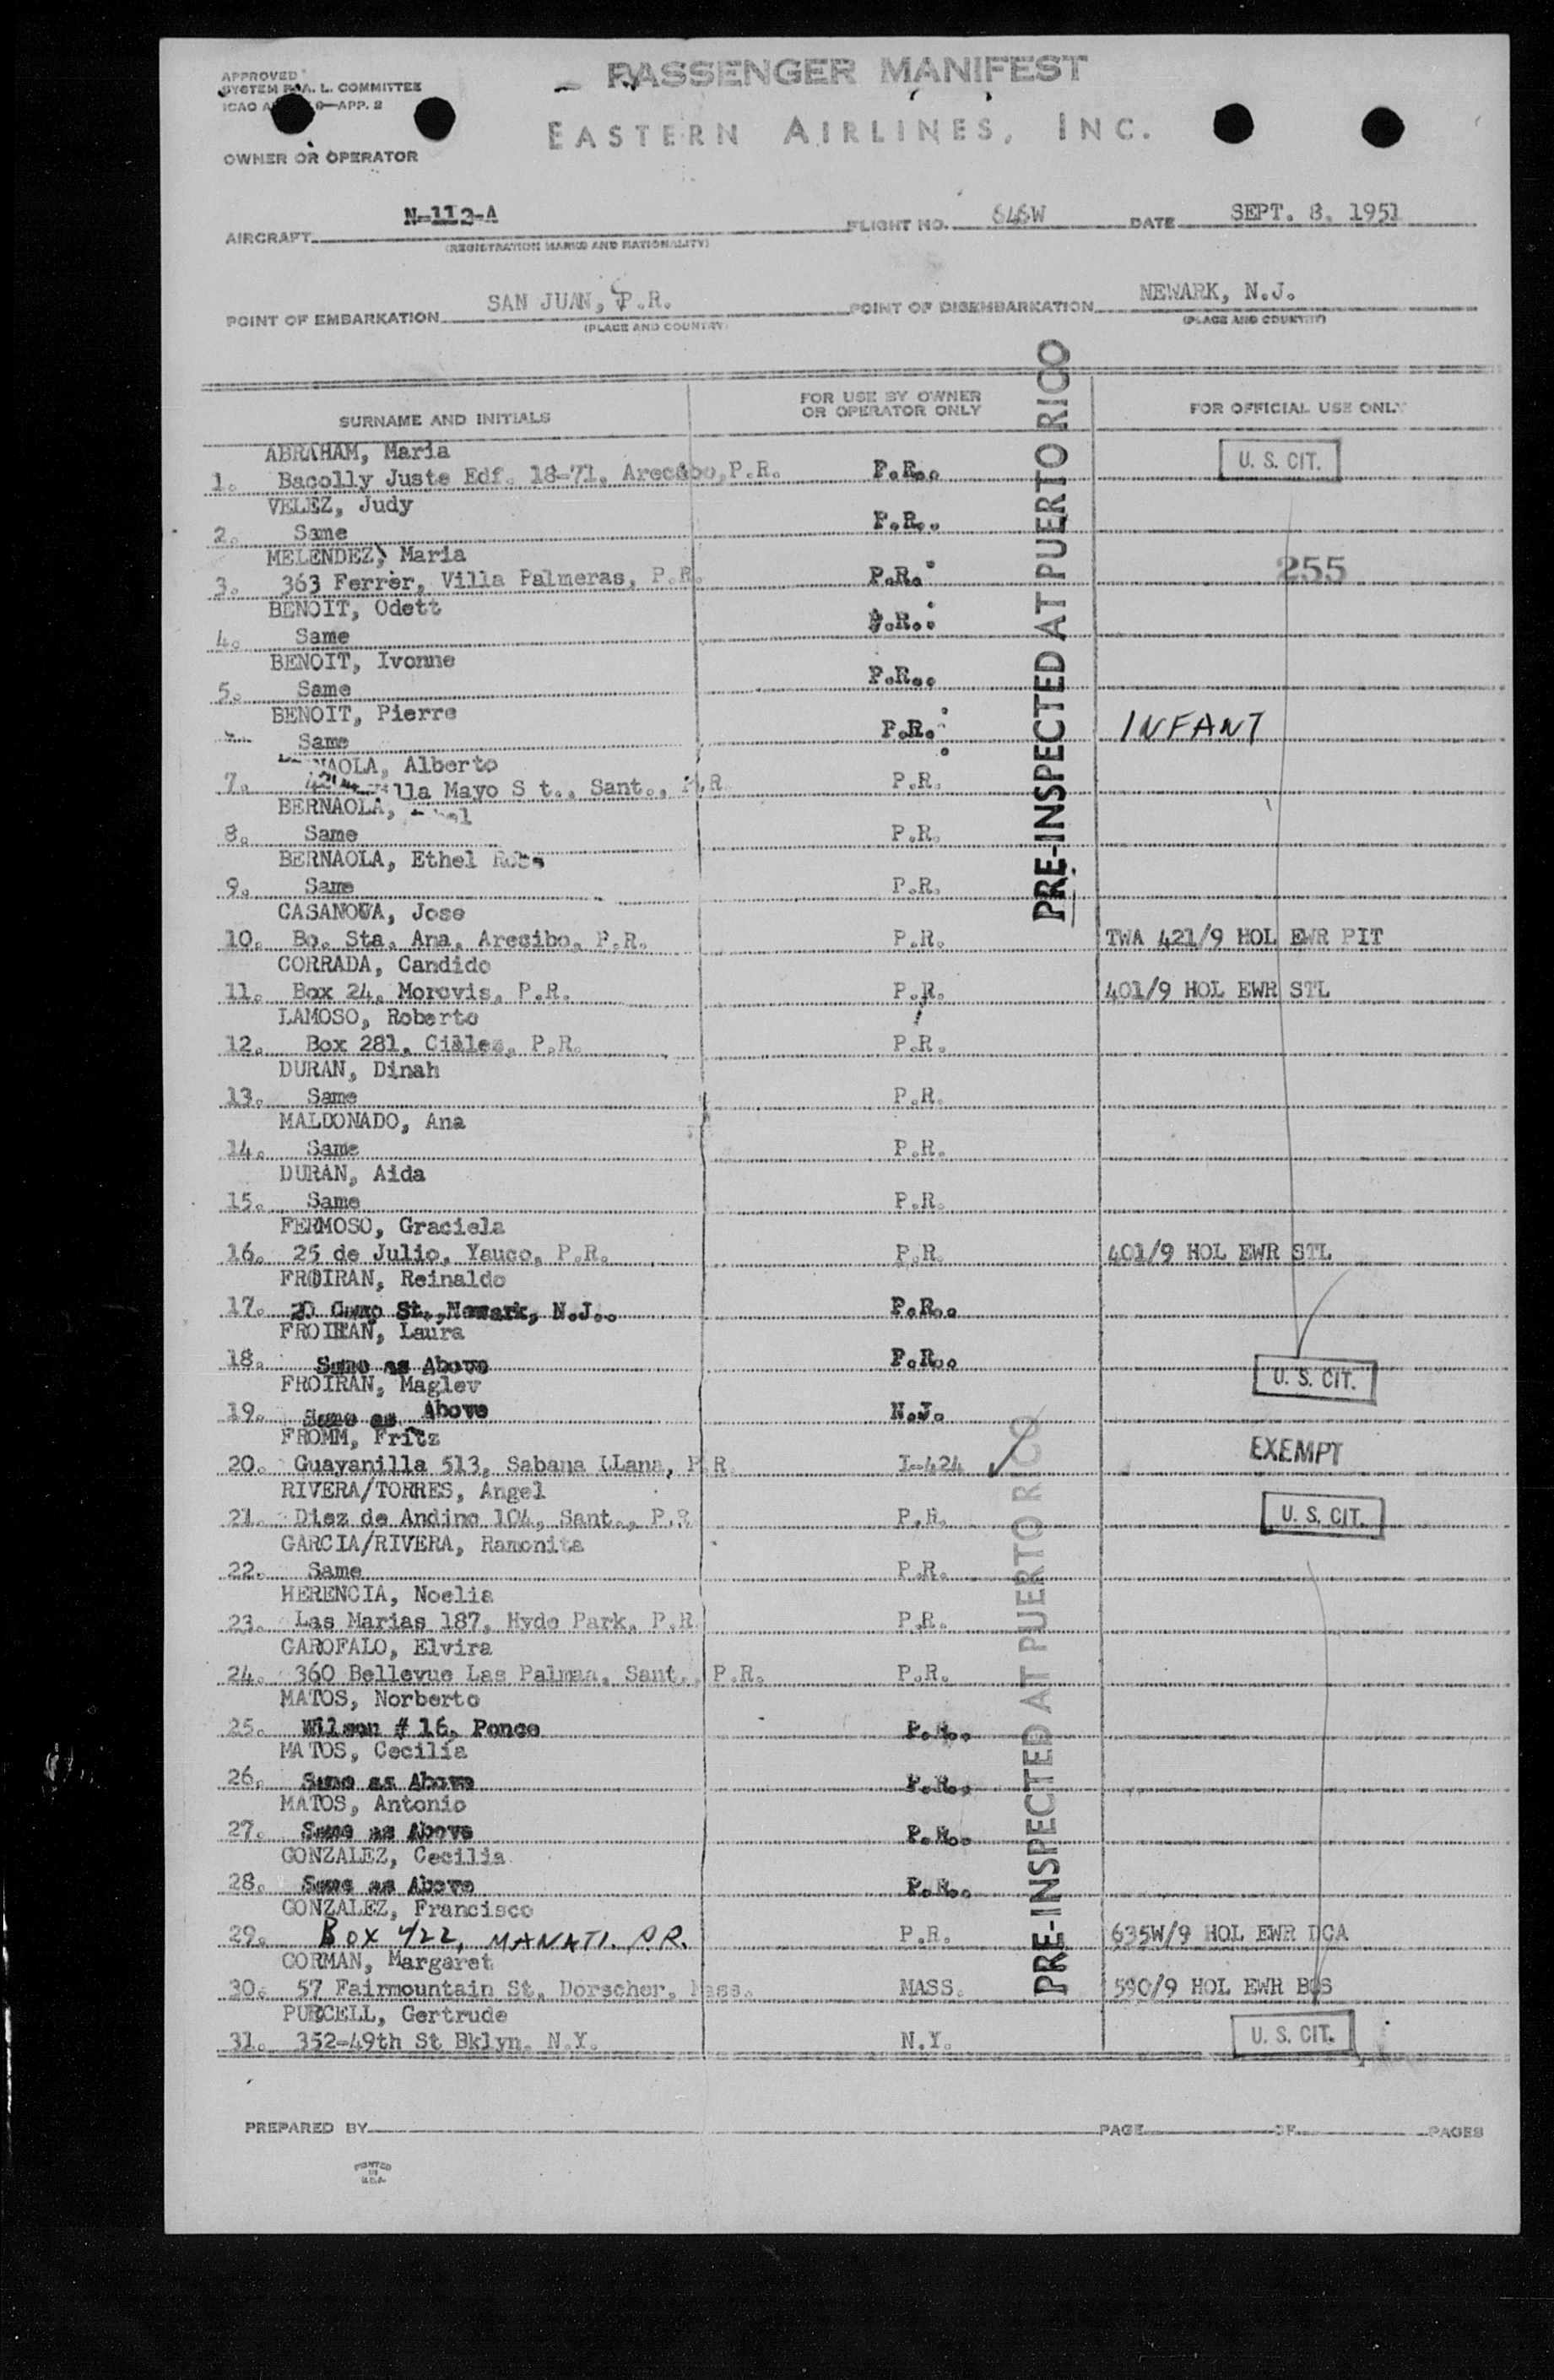 APPROVED
SYSTEM A. L. COMMITTEE
ICAO 9—APP. 2
PASSENGER MANIFEST
EASTERN AIRLINES, INC.
OWNER OR OPERATOR
AIRCRAFT N-112-A FLIGHT NO. 646W DATE SEPT. 8, 1951
(REGISTRATION MARKS AND NATIONALITY)
POINT OF EMBARKATION SAN JUAN, P.R. POINT OF DISEMBARKATION NEWARK, N.J.
(PLACE AND COUNTRY) (PLACE AND COUNTRY)
SURNAME AND INITIALS FOR USE BY OWNER OR OPERATOR ONLY FOR OFFICIAL USE ONLY
PRE-INSPECTED AT PUERTO RICO
ABRAHAM, Maria
1. Bacolly Juste Edf. 18-71, Arecibo, P.R. P.R.. U. S. CIT.
VELEZ, Judy
2. Same P.R..
MELENDEZ, Maria
3. 363 Ferrer, Villa Palmeras, P.R. P.R. 255
BENOIT, Odett
4. Same P.R..
BENOIT, Ivonne
5. Same P.R..
BENOIT, Pierre
Same P.R. INFANT
Alberto
7. Mayo S t., Sant., P.R. P.R.
BERNAOLA,
8. Same P.R.
BERNAOLA, Ethel
9. Same P.R.
CASANOVA, Jose
10. Bo. Sta. Ana, Arecibo, P.R. P.R. TWA 421/9 HOL EWR PIT
CORRADA, Candido
11. Box 24, Morovis, P.R. P.R. 401/9 HOL EWR STL
LAMOSO, Roberto
12. Box 281, Ciales, P.R. P.R.
DURAN, Dinah
13. Same P.R.
MALDONADO, Ana
14. Same P.R.
DURAN, Aida
15. Same P.R.
FERMOSO, Graciela
16. 25 de Julio, Yauco, P.R. P.R. 401/9 HOL EWR STL
FROIRAN, Reinaldo
17. 20 St., Newark, N.J.. P.R..
FROIRAN, Laura
18. Same as Above P.R.. U. S. CIT.
FROIRAN, Maglev
19. Same as Above N.J.
FROMM, Fritz
20. Guayanilla 513, Sabana LLana, P.R. I-424 EXEMPT
RIVERA/TORRES, Angel
21. Diez de Andino 104, Sant., P.R. P.R. U. S. CIT.
GARCIA/RIVERA, Ramonita
22. Same P.R.
HERENCIA, Noelia
23. Las Marias 187, Hyde Park, P.R. P.R.
GAROFALO, Elvira
24. 360 Bellevue Las Palmas, Sant., P.R. P.R.
MATOS, Norberto
25. Wilson # 16, Ponce P.R..
MATOS, Cecilia
26. Same as Above P.R..
MATOS, Antonio
27. Same as Above P.R..
GONZALEZ, Cecilia
28. Same as Above P.R..
GONZALEZ, Francisco
29. BOX 422, MANATI. P.R. P.R. 635W/9 HOL EWR DCA
CORMAN, Margaret
30. 57 Fairmountain St, Dorscher, Mass. MASS. 590/9 HOL EWR BOS
PURCELL, Gertrude
31. 352-49th St Bklyn. N.Y. N.Y. U. S. CIT.
PRE-INSPECTED AT PUERTO RICO
PREPARED BY PAGE OF PAGES
PRINTED
IN
U.S.A.